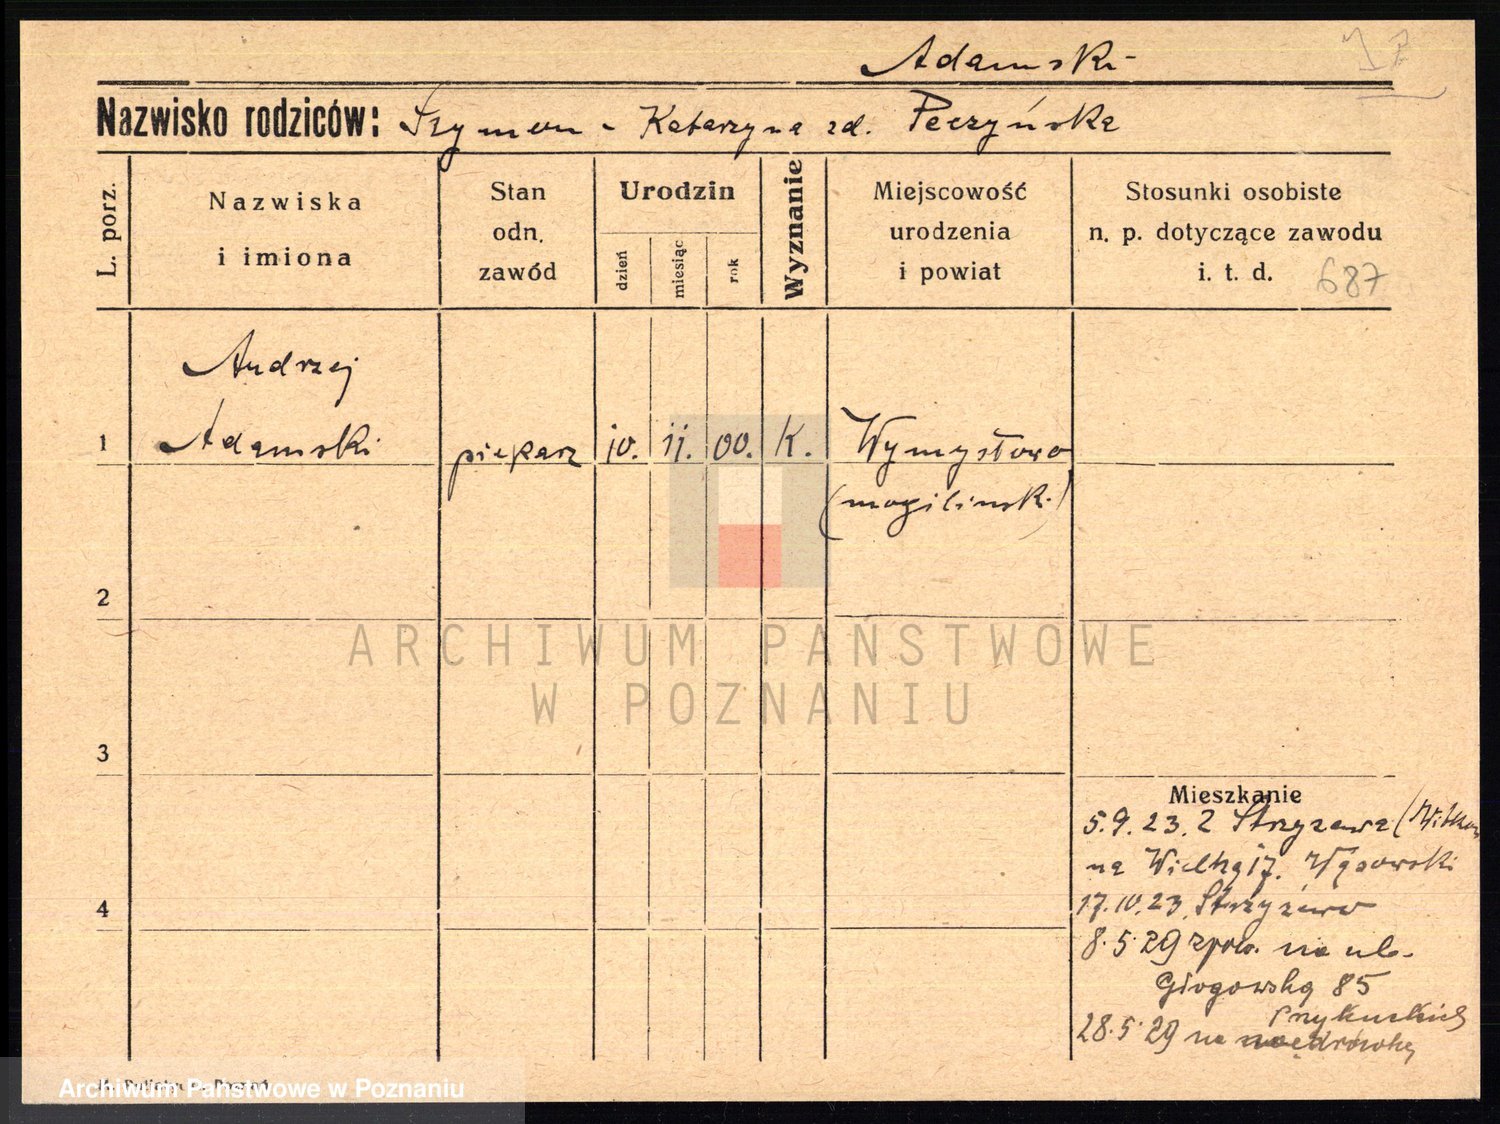 Adamski
Nazwisko rodziców: Szymon - Katarzyna zd. Peczyńska
L. porz.
Nazwiska
i imiona
Stan
odn.
zawód
Urodzin
dzień
miesiąc
rok
Wyznanie
Miejscowość
urodzenia
i powiat
Stosunki osobiste
n. p. dotyczące zawodu
i. t. d.
687
Andrzej
1 Adamski piekarz 10. 11. 00. K. Wymysłowo
(mogilinski)
2
ARCHIWUM PAŃSTWOWE
W POZNANIU
3
Mieszkanie
5.9.23. z Strzyzewa (Witkow
na Wielką 17.
17.10.23. Strzyżewo
8.5.29 na ul.
Głogowską 85
28.5.29 na wędrówkę
4
Archiwum Państwowe w Poznaniu